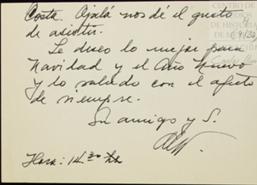 Costa. Ojalá nos dé el gusto
de asistir.
Le deseo lo mejor para
Navidad y el Año Nuevo
y lo saluda con el afecto
de siempre.
Su amigo y S.
Hora: 14.30 hs